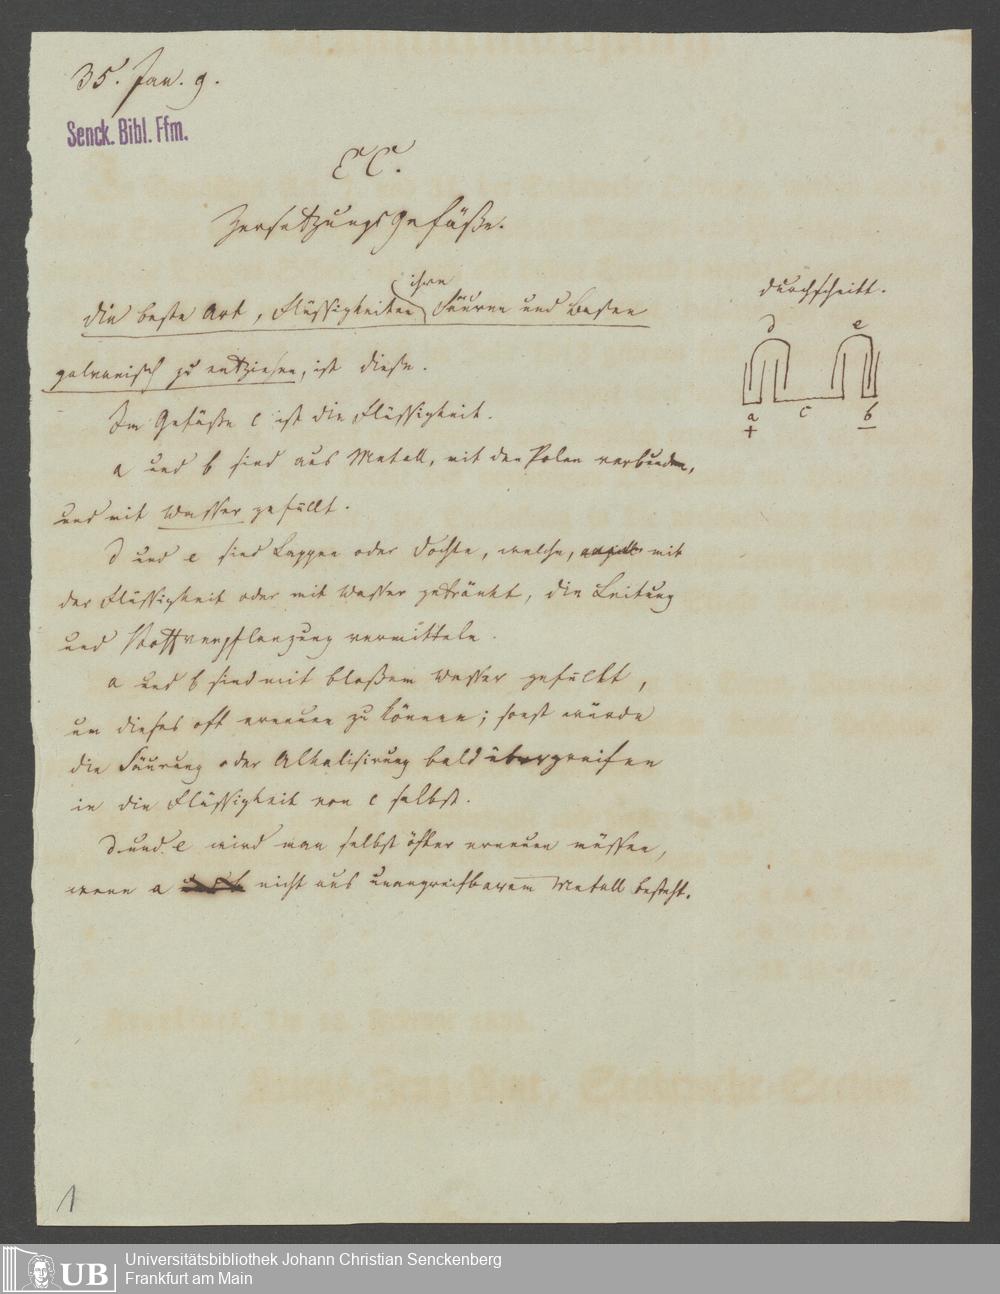 35. Jan. 9.
Senck. Bibl. Ffm.
CC.
Zersetzungsgefäße.
Durchschnitt.
ihre
Die beste Art, Flüssigkeiten Säuren und Basen
galvanisch zu entziehen, ist diese.
d e
a c b
+ –
Im Gefäße c ist die Flüssigkeit.
a und b sind aus Metall, mit den Polen verbunden,
und mit Wasser gefüllt.
d und e sind Lappen oder Dochte, welche, mit
der Flüssigkeit oder mit Wasser getränkt, die Leitung
und Stoffverpflanzung vermitteln.
a und b sind mit bloßem Wasser gefüllt,
um dieses oft erneuen zu können; sonst würde
die Säurung oder Alkalisirung bald übergreifen
in die Flüssigkeit von c selbst.
d und e wird man selbst öfter erneuen müssen,
wenn a nicht aus unangreifbarem Metall besteht.
1
UB
Universitätsbibliothek Johann Christian Senckenberg
Frankfurt am Main